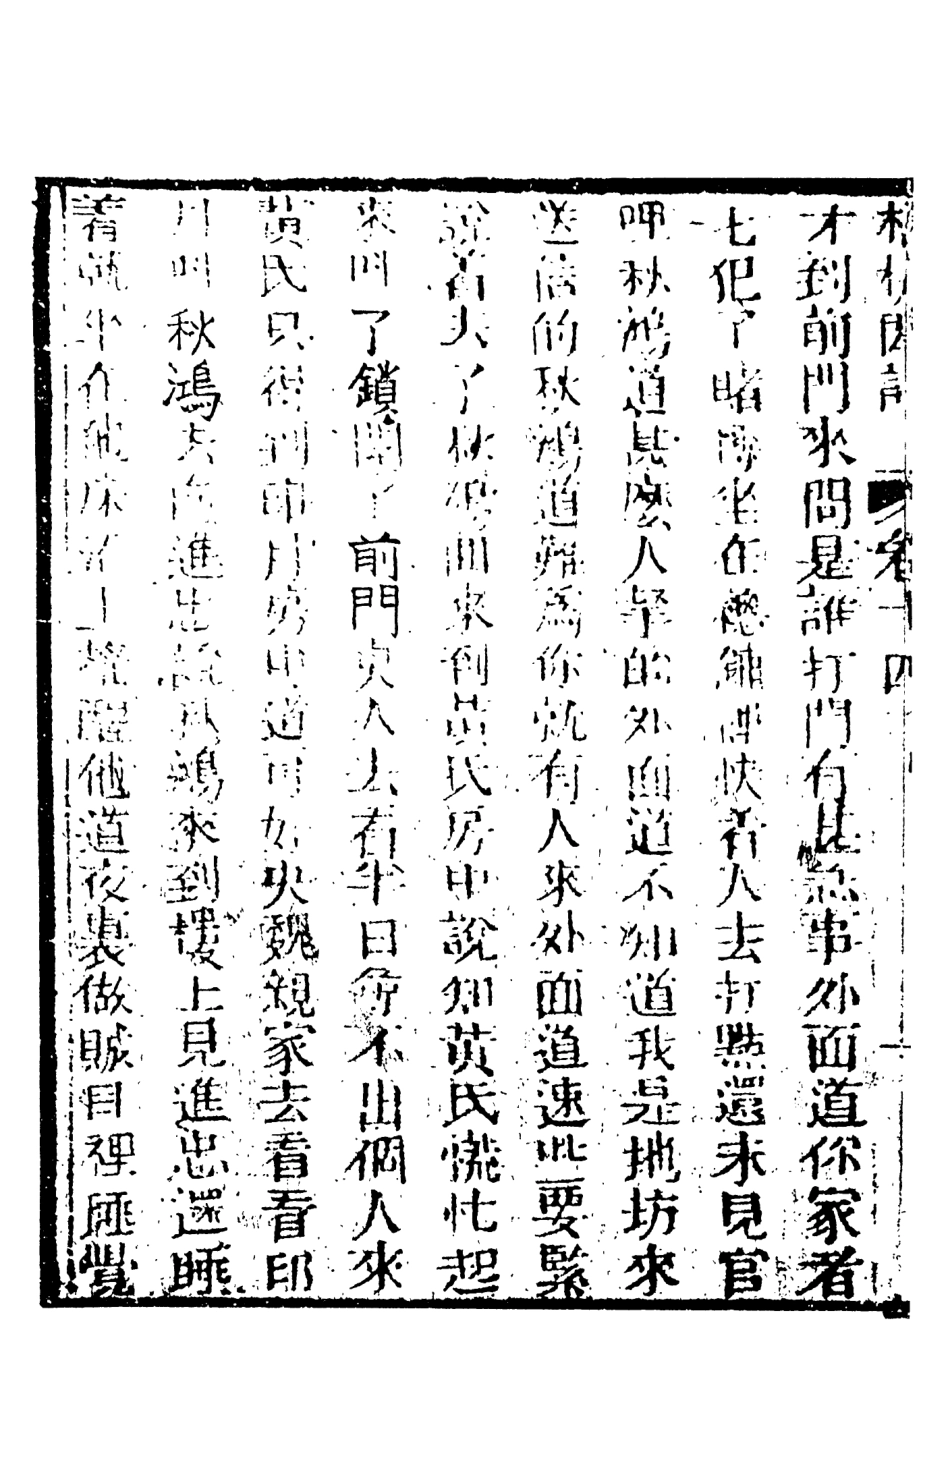 卷十四
才到前門來問是誰打門有甚急事外面道你家老
七犯了賭博坐在總鋪裡快着人去打點還未見官
呷秋鴻道甚麼人拏的外面道不知道我是地坊來
送信的秋鴻道難爲你就有人來外面道速些要緊
說着去了秋鴻回來到黃氏房中說知黃氏慌忙起
來叫了鎖開了前門央人去有半日並不出個人來
黃氏只得到印月房中道可好央魏親家去看看印
月叫秋鴻去向進忠說秋鴻來到樓上見進忠還睡
着就坐在他床沿上搖醒他道夜裏做賊日裡睡覺